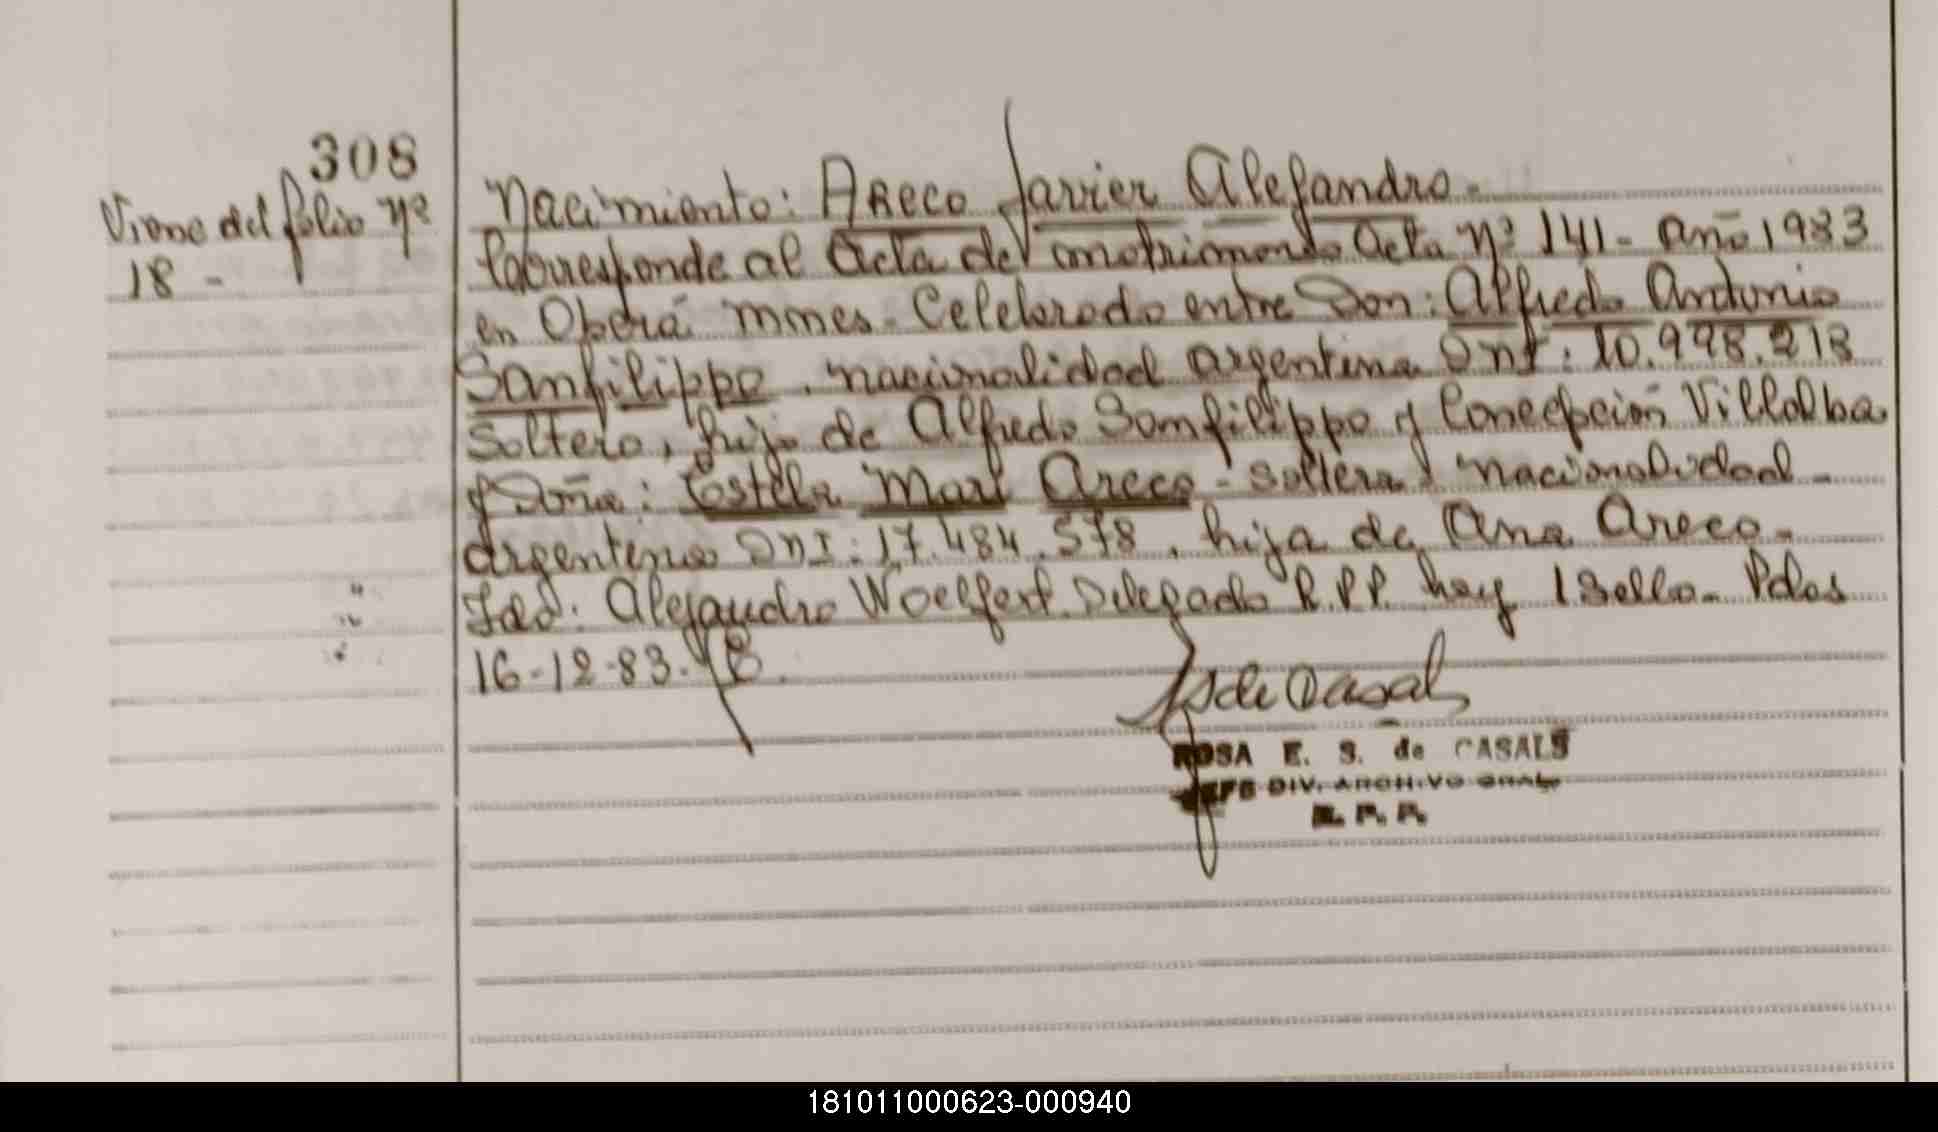 308
Viene del folio nº
18 -
Nacimiento: ARECO Javier Alejandro.-
Corresponde al Acta de matrimonio Acta nº 141 - Año 1983
en Oberá mnes. Celebrado entre Don: Alfredo Antonio
Sanfilippo. nacionalidad argentina DNI: 10.998.218
Soltero, hijo de Alfredo Sanfilippo y Concepción Villalba
y Doña: Estela Mari Areco - soltera nacionalidad -
argentina DNI: 17.484.578. hija de Ana Areco.-
Fdo: Alejandro Woelfert Delegado R.P.P. hay 1 Sello - Pdas
16-12-83.
de Casals
ROSA E. S. de CASALS
JEFE DIV. ARCHIVO GRAL.
R. P. P.
181011000623-000940